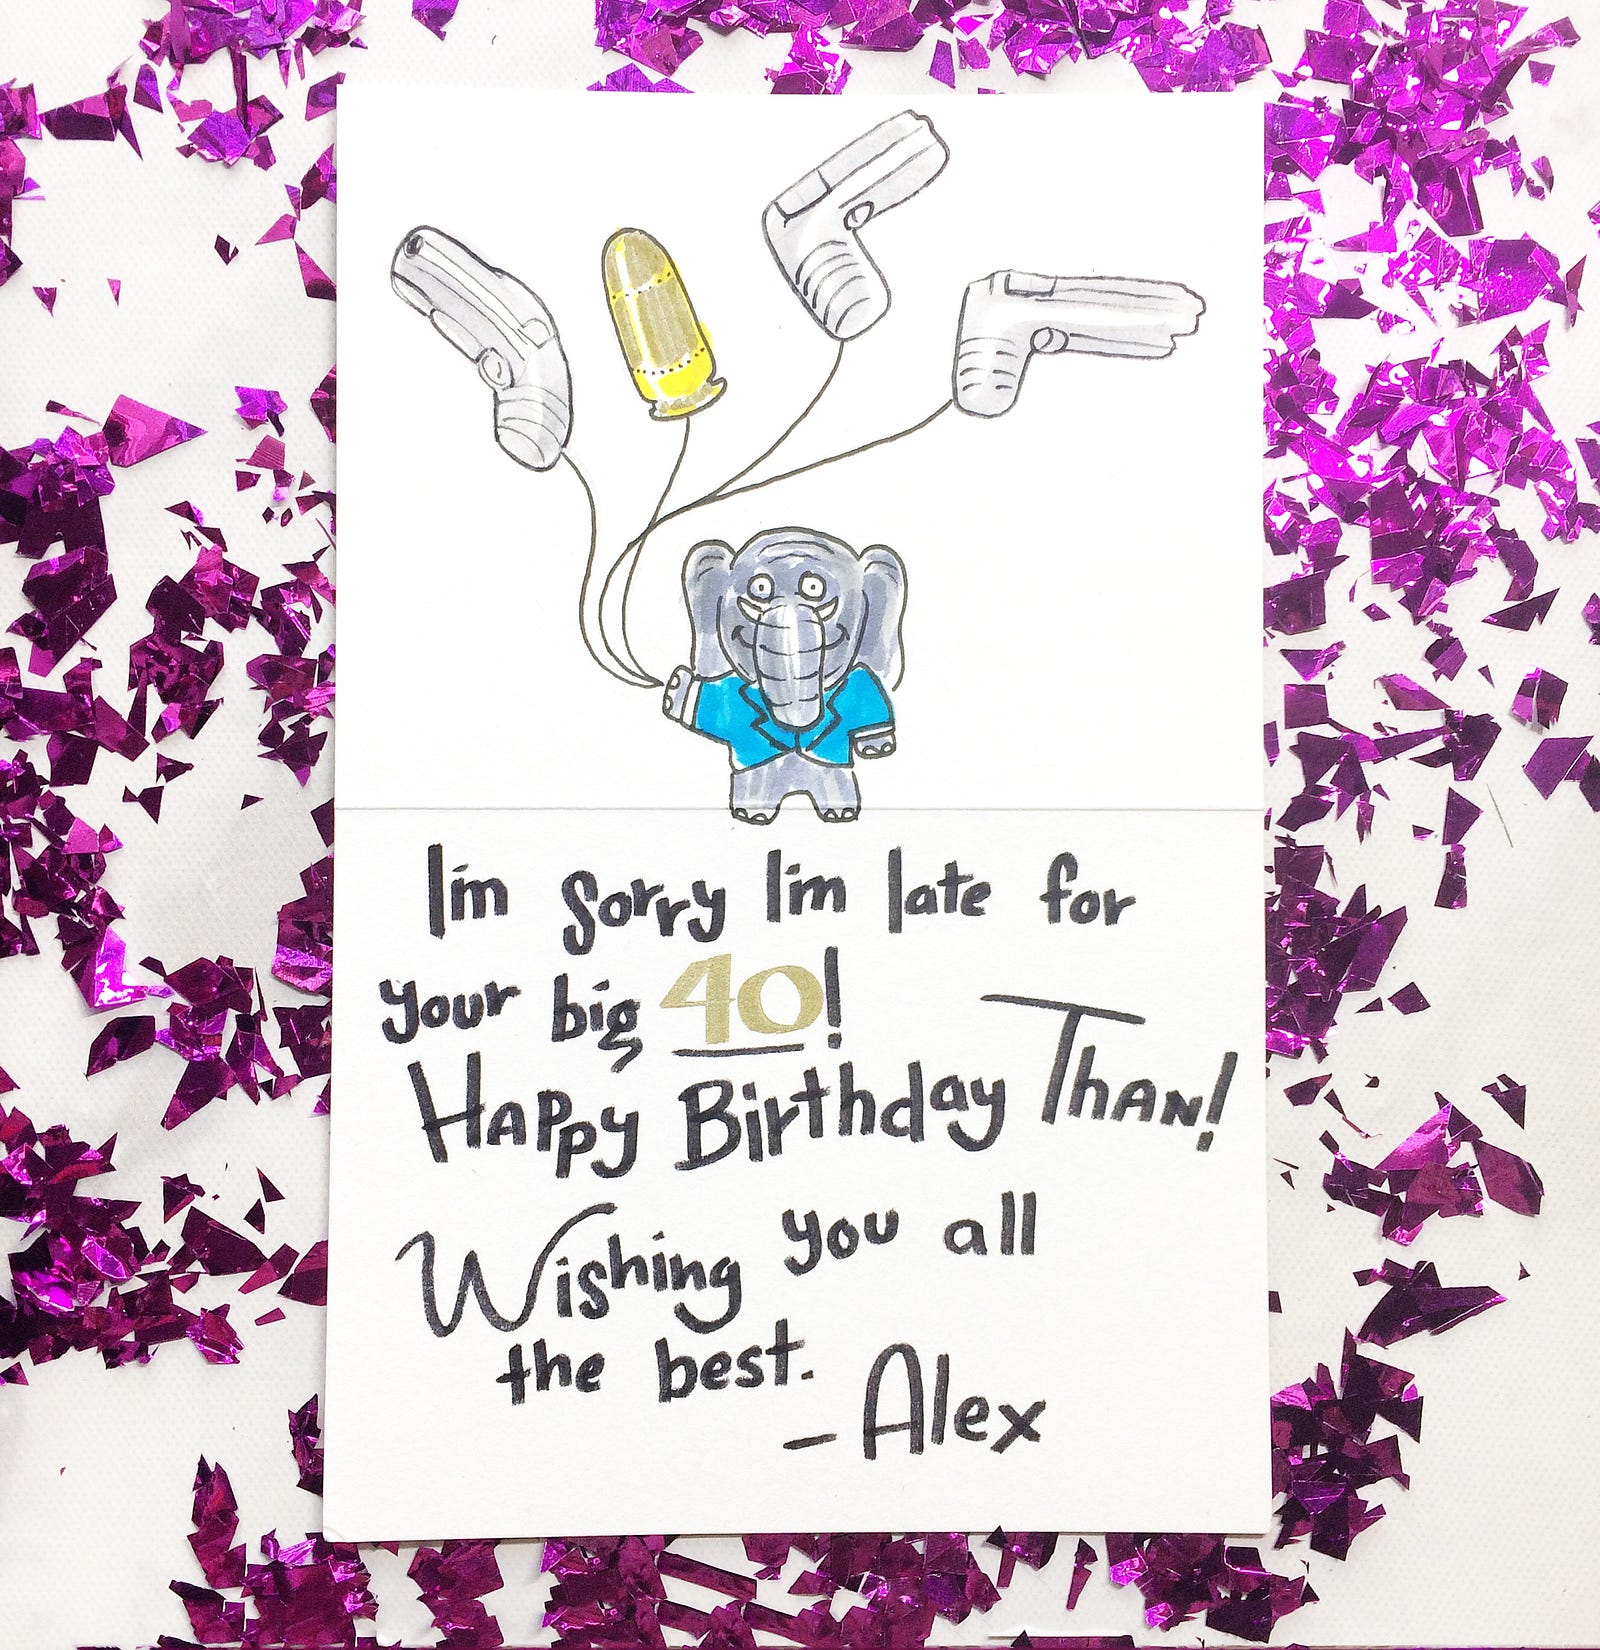 I'm sorry I'm late for
your big 40!
Happy Birthday Than!
Wishing you all
the best.
- Alex